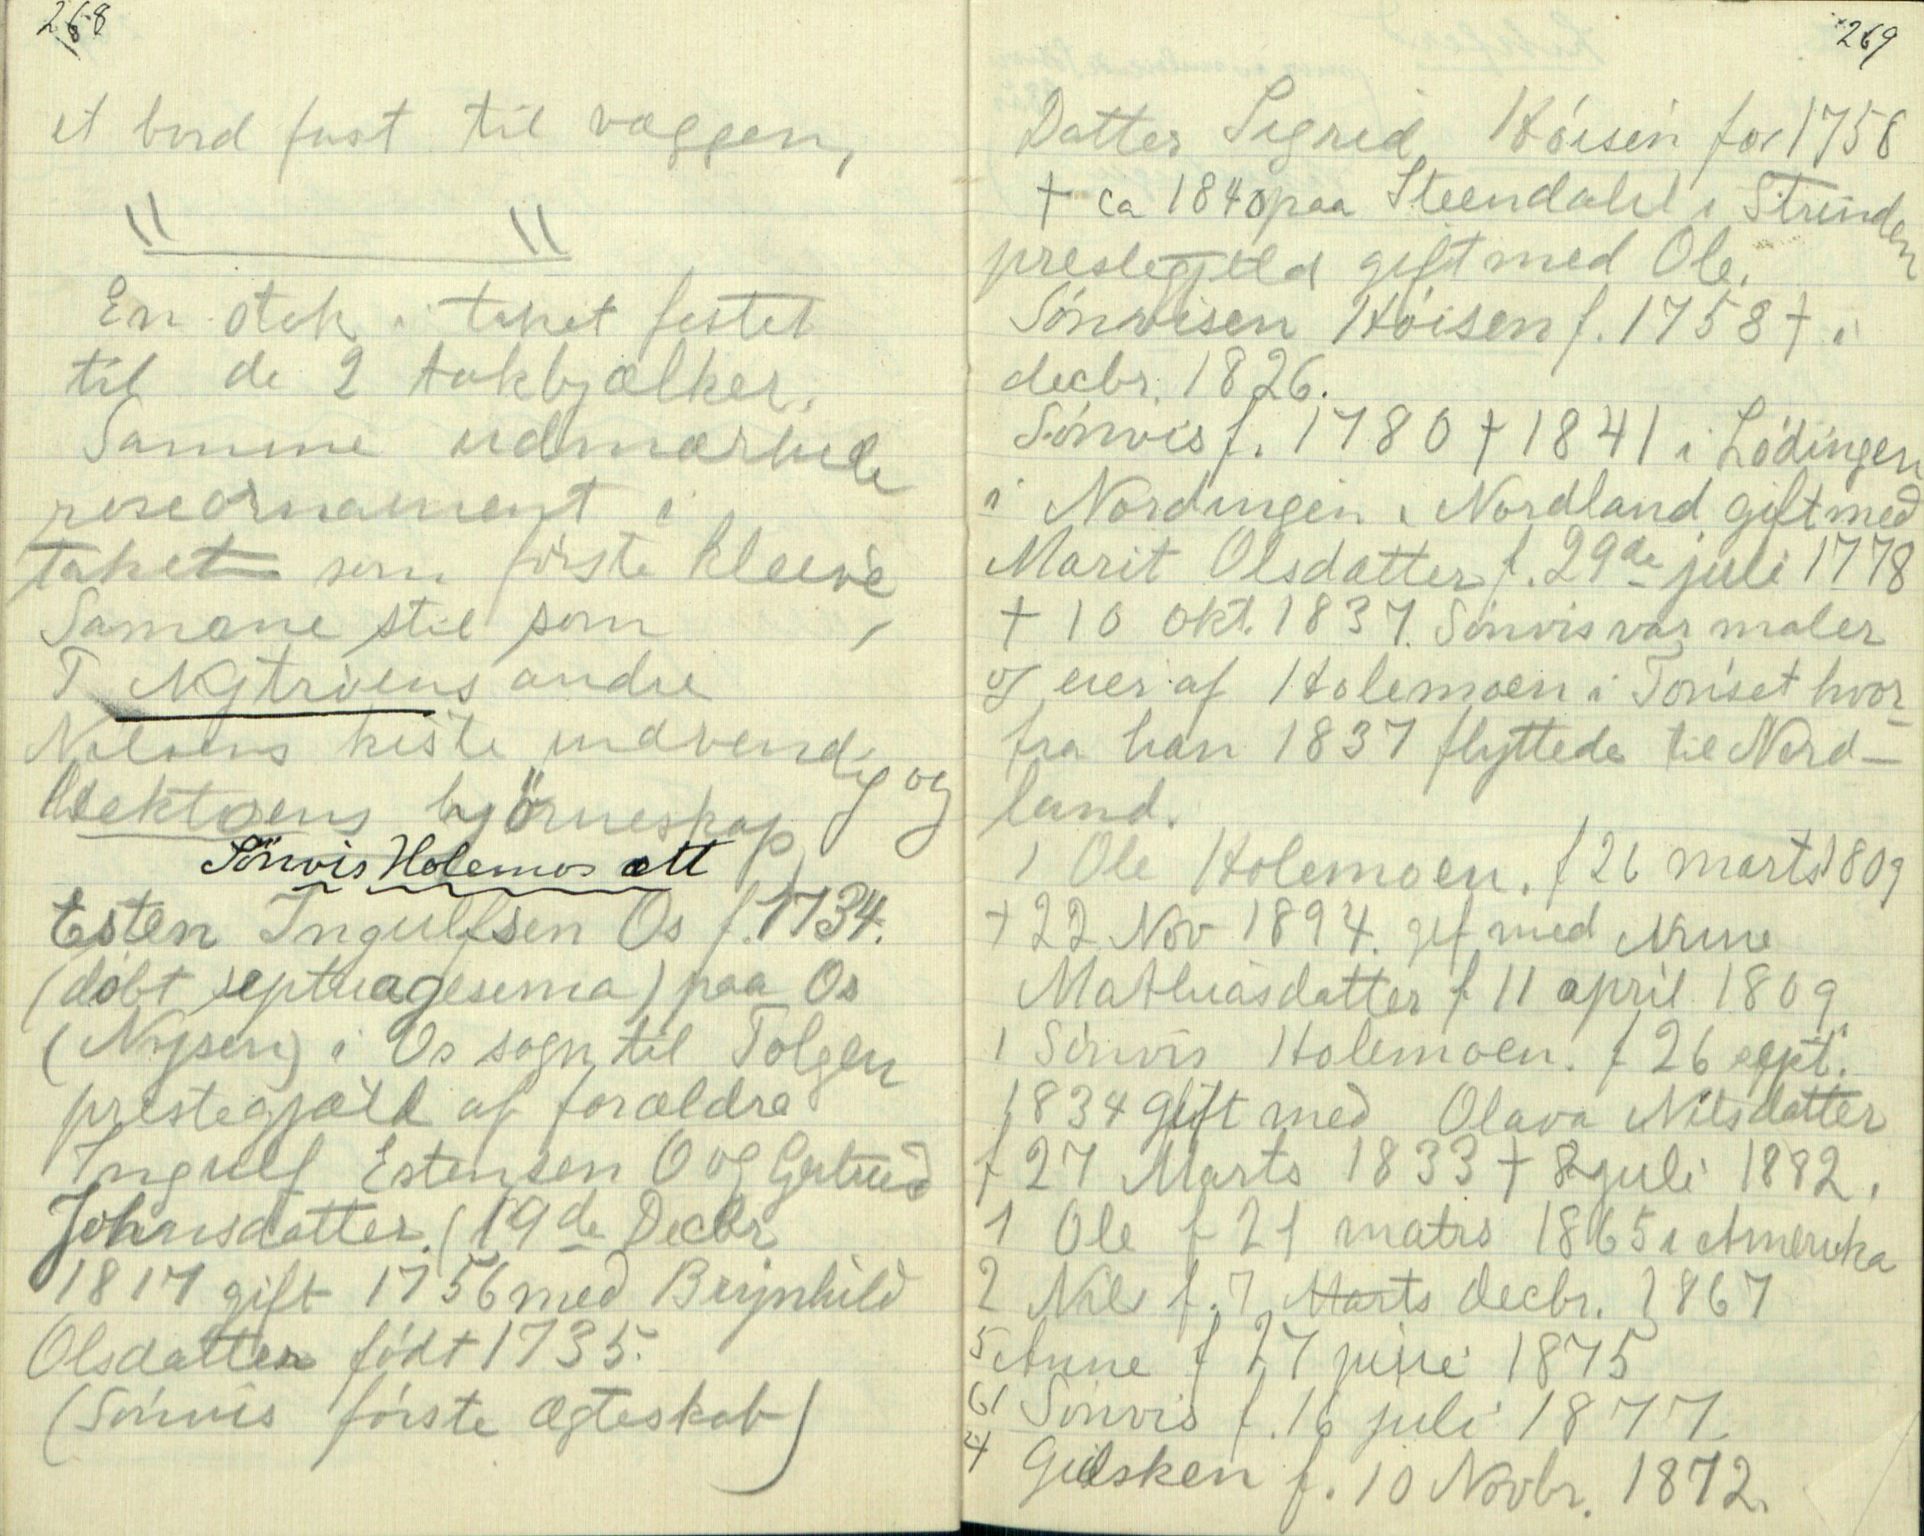 268
et bord fast til væggen,
En stok i taket festet
til de 2 takbjælker.
Samme udmærkede
roseornament i
taket som første kleeve
Samme stil som
T Nytrøens andre
Nilsens kiste indvendig og
hjörneskap
Sönvis Holemos ætt
Esten Ingulfsen Os f. 1734.
(døbt septuagesima) paa Os
(Nysen) i Os sogn til Tolgen
prestegjæld af forældre
Ingulf Estensen O og Gertrud
Johnsdatter. (19de Decbr
1817 gift 1756 med Brynhild
Olsdatter født 1735.
(Sønvis første ægteskab)
269
Datter Sigrid Høisen før 1758
† ca 1840 paa Steendahl i Strinden
prestegjeld gift med Ole.
Sønvisen Høisen f. 1758 † i
decbr. 1826.
Sønvis f. 1780 † 1841 i Lødingen
i Nordingen i Nordland gift med
Marit Olsdatter f. 29de juli 1778
† 10 okt. 1837. Sønvis var maler
og eier af Holemoen i Tønset hvor-
fra han 1837 flyttede til Nord-
land.
1 Ole Holemoen. f 26 marts 1809
† 22 Nov 1894. gif med Anne
Mathiasdatter f 11 april 1809
1 Sönvis Holemoen. f 26 sept.
1834 gift med Olava Nilsdatter
f 27 Marts 1833 † 8 juli 1882.
1 Ole f 21 matrs 1865 i Amerika
2 Nils f. 7 Marts decbr. 1867
5 Anne f 27 juni 1875
6 Sønvis f. 16 juli 1877.
4 Gidsken f. 10 Novbr. 1872.